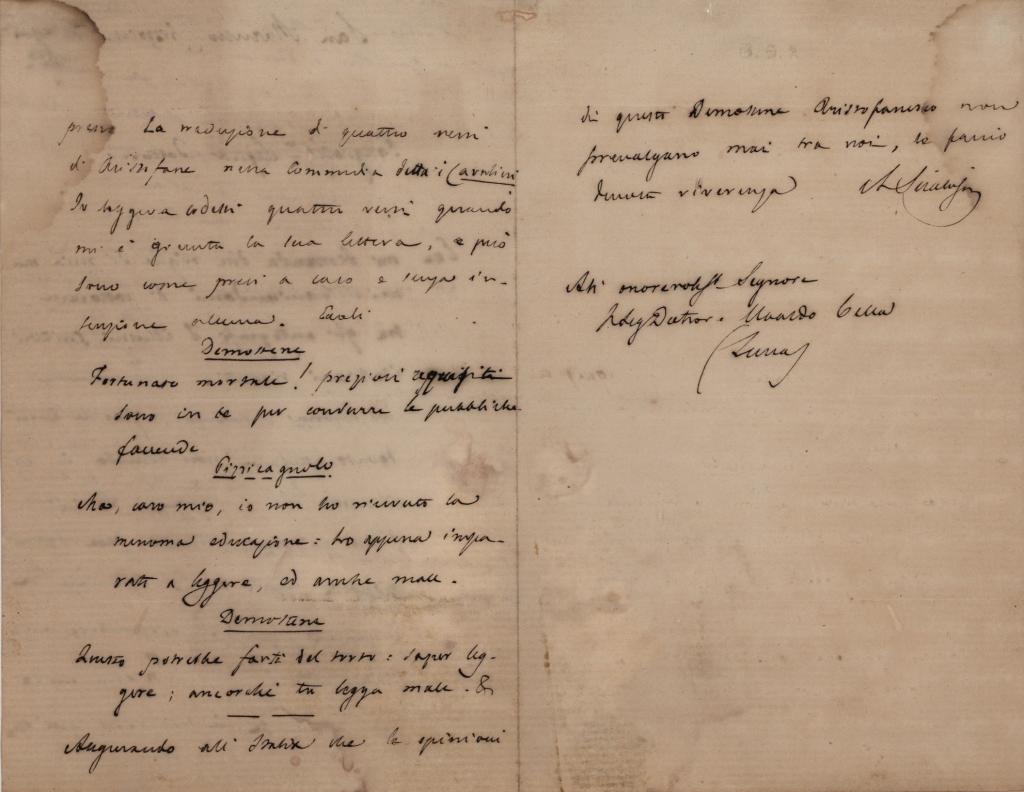 presso la traduzione di quattro versi
di Aristofane nella Commedia detta i Cavalieri
Io leggeva codesti quattro versi quando
mi è giunta la sua lettera, e può
sono come presi a caso e senza in-
tenzione alcuna. Eccoli
Demostene
Fortunato mortale! preziosi requisiti
sono in te per condurre le pubbliche
faccende
Pizzicagnolo
Ma, caro mio, io non ho ricevuto la
minoma educazione: ho appena impa-
rato a leggere, ed anche male.
Demostene
Questo potrebbe farti del torto: saper leg-
gere; ancorchè tu legga male. &
Augurando all'Italia che le opinioni
di questo Demostene Aristofanesco non
prevalgano mai tra noi, la faccio
devota riverenza
All' onorevolss. Signore
Il Sig Dottor. Uhardo Cella